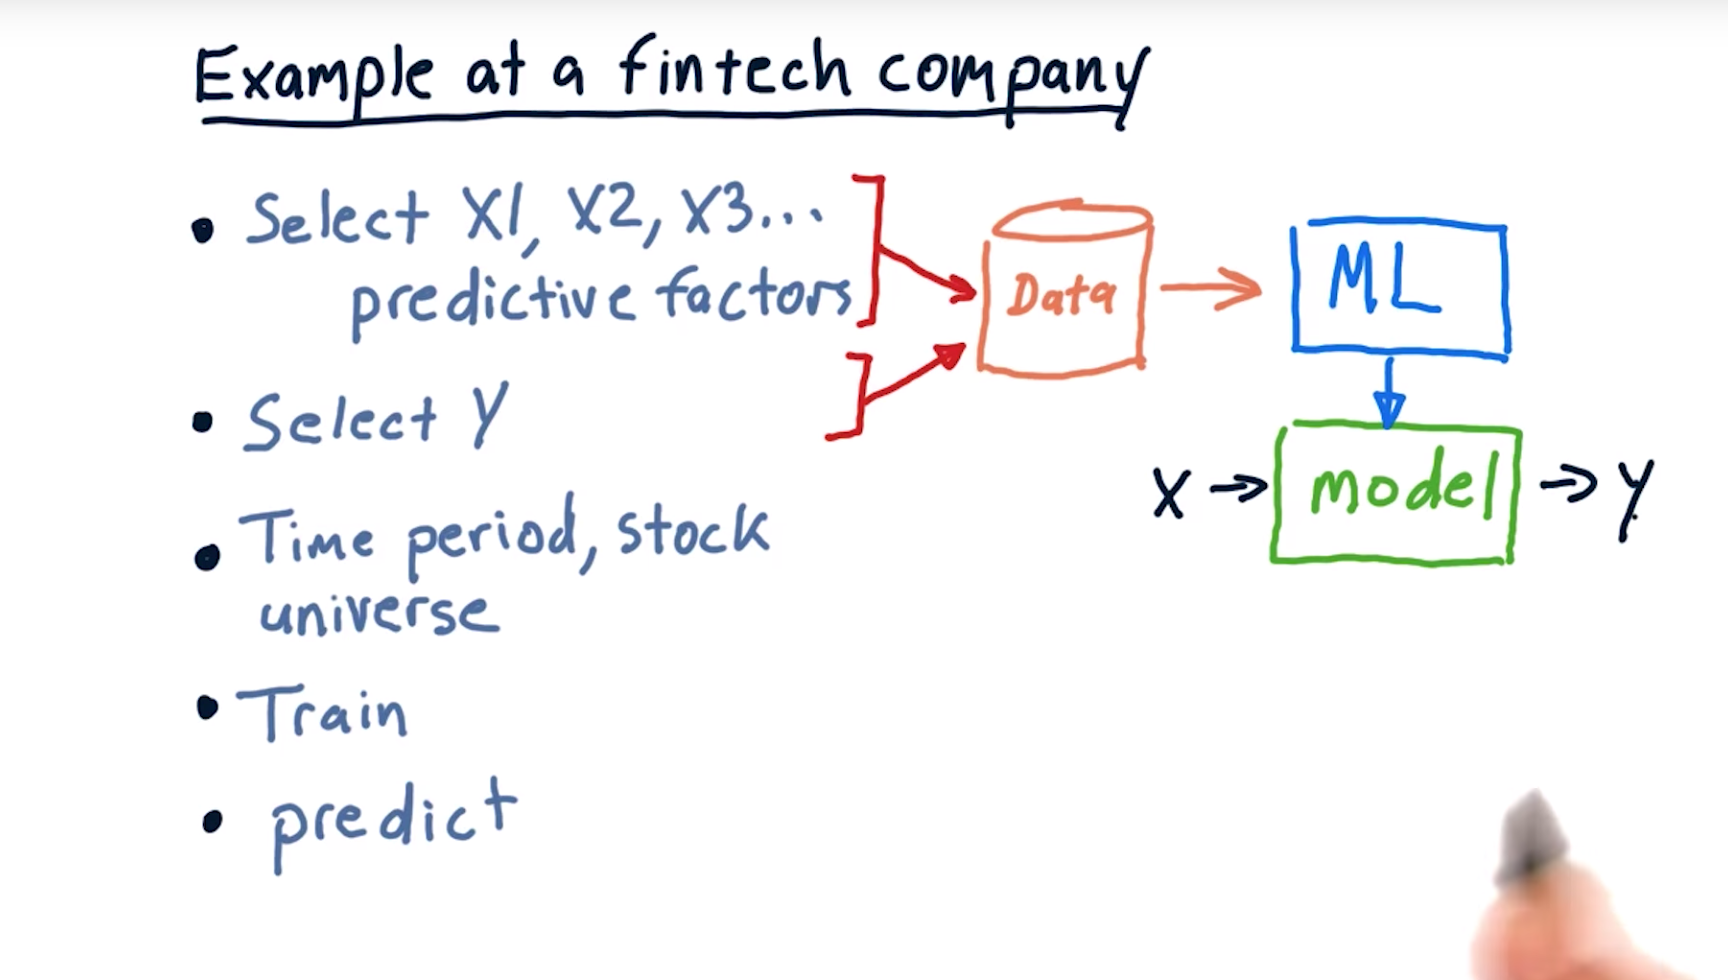 Example at a fintech company
• Select X1, X2, X3...
predictive factors
• Select Y
• Time period, stock
universe
• Train
• predict
Data
ML
model
X
Y